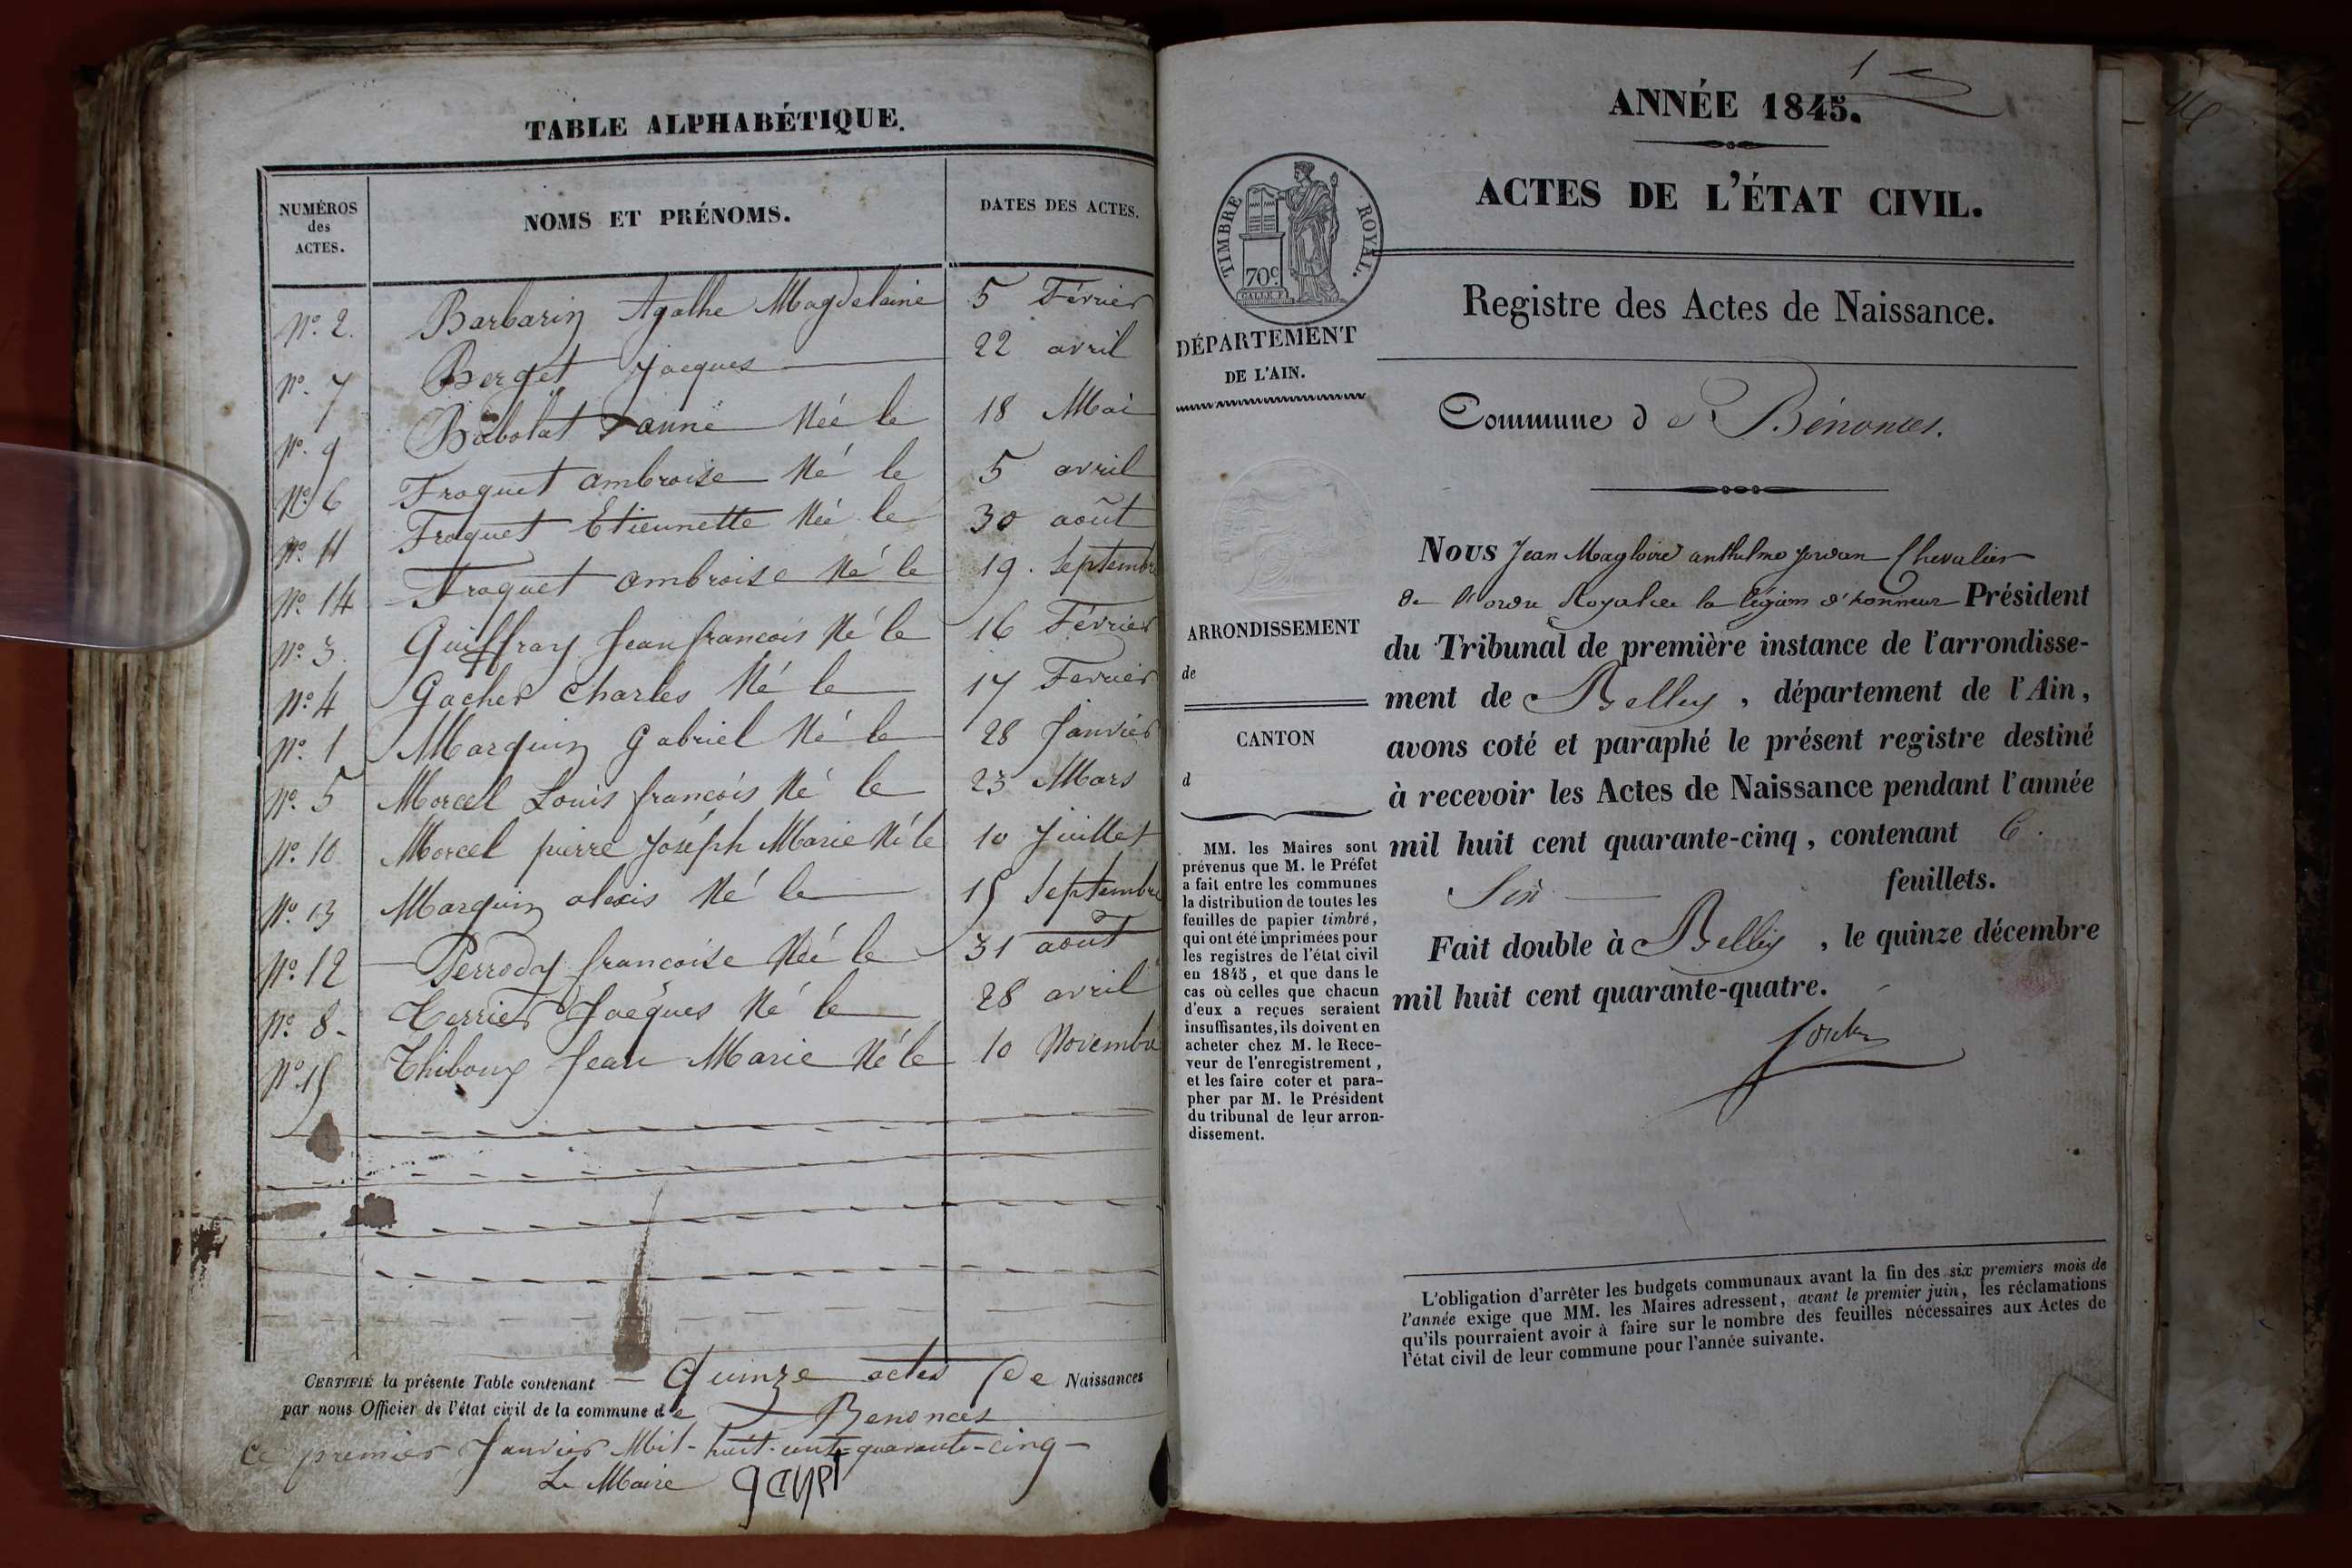 TABLE ALPHABÉTIQUE.
NUMÉROS
des
ACTES.
NOMS ET PRÉNOMS.
DATES DES ACTES.
No. 2. Barbarin Agathe Magdelaine 5 Février
No. 7 Berget Jacques 22 avril
No. 9 Babolat Née le 18 Mai
No. 6 Troquet ambroise Né le 5 avril
No. 11 Troquet Etiennette Née le 30 août
No. 14 Troquet ambroise Né le 19. Septembre
No. 3. Guiffray Jean francois Né le 16 Février
No. 4 Gacher Charles Né le 17 Fevrier
No. 1 Marquin Gabriel Né le 28 Janvier
No. 5 Morcel Louis francois Né le 23 Mars
No. 10 Morcel pierre Joseph Marie Né le 10 Juillet
No. 13 Marquin alexis Né le 15 Septembre
No. 12 Perrody francoise Née le 31 août
No. 8 Terrier Jacques Né le 28 avril
No. 15 Thiboux Jean Marie Né le 10 Novembre
CERTIFIÉ la présente Table contenant Quinze actes de Naissances
par nous Officier de l'état civil de la commune de Benonces
Ce premier Janvier Mil-huit-cent-quarante-cinq-
Le Maire
1
ANNÉE 1845.
ACTES DE L'ÉTAT CIVIL.
TIMBRE ROYAL.
70c.
Registre des Actes de Naissance.
DÉPARTEMENT
DE L'AIN.
Commune de Bénonces.
ARRONDISSEMENT
de
CANTON
d
MM. les Maires sont
prévenus que M. le Préfet
a fait entre les communes
la distribution de toutes les
feuilles de papier timbré,
qui ont été imprimées pour
les registres de l'état civil
en 1845, et que dans le
cas où celles que chacun
d'eux a reçues seraient
insuffisantes, ils doivent en
acheter chez M. le Rece-
veur de l'enregistrement,
et les faire coter et para-
pher par M. le Président
du tribunal de leur arron-
dissement.
Nous Jean Magloire anthelme Chevalier
de l'ordre Royal de la légion d'honneur Président
du Tribunal de première instance de l'arrondisse-
ment de Belley, département de l'Ain,
avons coté et paraphé le présent registre destiné
à recevoir les Actes de Naissance pendant l'année
mil huit cent quarante-cinq, contenant 6.
Six feuillets.
Fait double à Belley, le quinze décembre
mil huit cent quarante-quatre.
L'obligation d'arrêter les budgets communaux avant la fin des six premiers mois de
l'année exige que MM. les Maires adressent, avant le premier juin, les réclamations
qu'ils pourraient avoir à faire sur le nombre des feuilles nécessaires aux Actes de
l'état civil de leur commune pour l'année suivante.